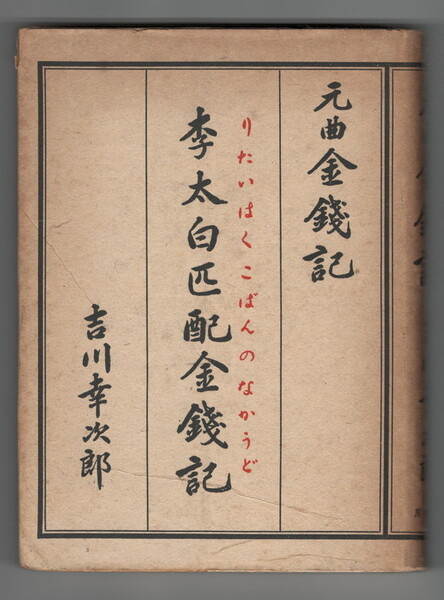 元曲金錢記
りたいはくこばんのなかうど
李太白匹配金錢記
吉川幸次郎